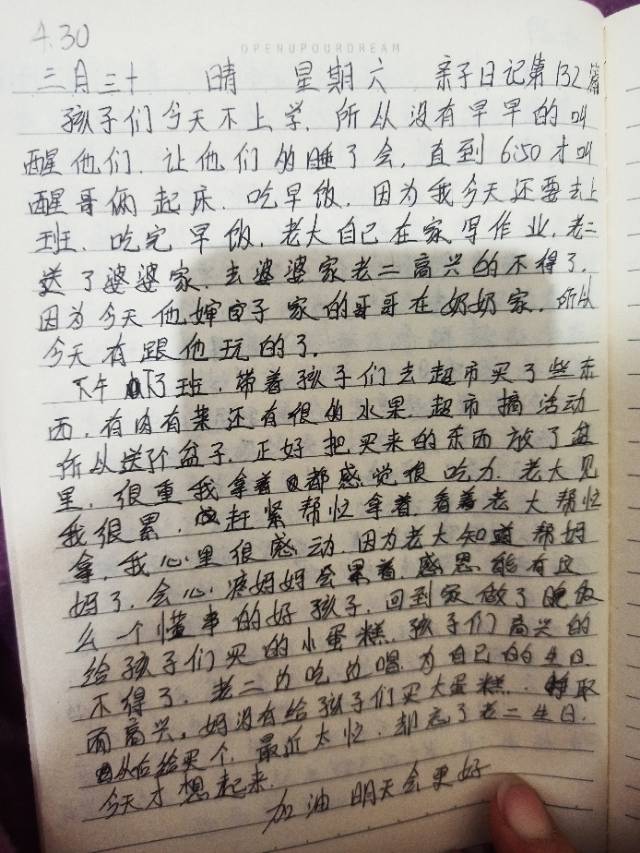 4.30
OPENUPOURDREAM
三月三十 晴 星期六 亲子日记第132篇
孩子们今天不上学.所从没有早早的叫
醒他们.让他们多睡了会.直到6:50才叫
醒哥俩起床.吃早饭.因为我今天还要去上
班.吃完早饭.老大自己在家写作业.老二
送了婆婆家.去婆婆家老二高兴的不得了.
因为今天他婶子家的哥哥在奶奶家.所从
今天有跟他玩的了.
下午下了班.带着孩子们去超市买了些东
西.有肉有菜还有很多水果.超市搞活动
所从送个盆子.正好把买来的东西放了盆
里.很重我拿着都感觉很吃力.老大见
我很累.赶紧帮忙拿着.看着老大帮忙
拿.我心里很感动.因为老大知道帮妈
妈了.会心疼妈妈会累着.感恩能有这
么一个懂事的好孩子.回到家做了晚饭
给孩子们买的小蛋糕.孩子们高兴的
不得了.老二边吃边唱.为自己的生日
而高兴。妈没有给孩子们买大蛋糕.取
从后给买个.最近太忙.都忘了老二生日.
今天才想起来.
加油 明天会更好